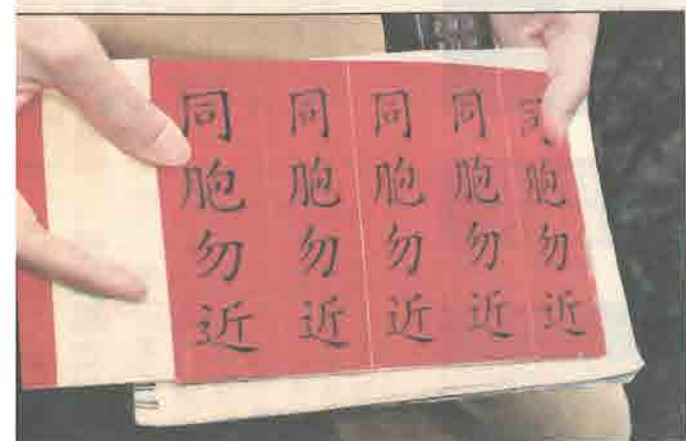 同胞勿近
同胞勿近
同胞勿近
同胞勿近
同胞勿近